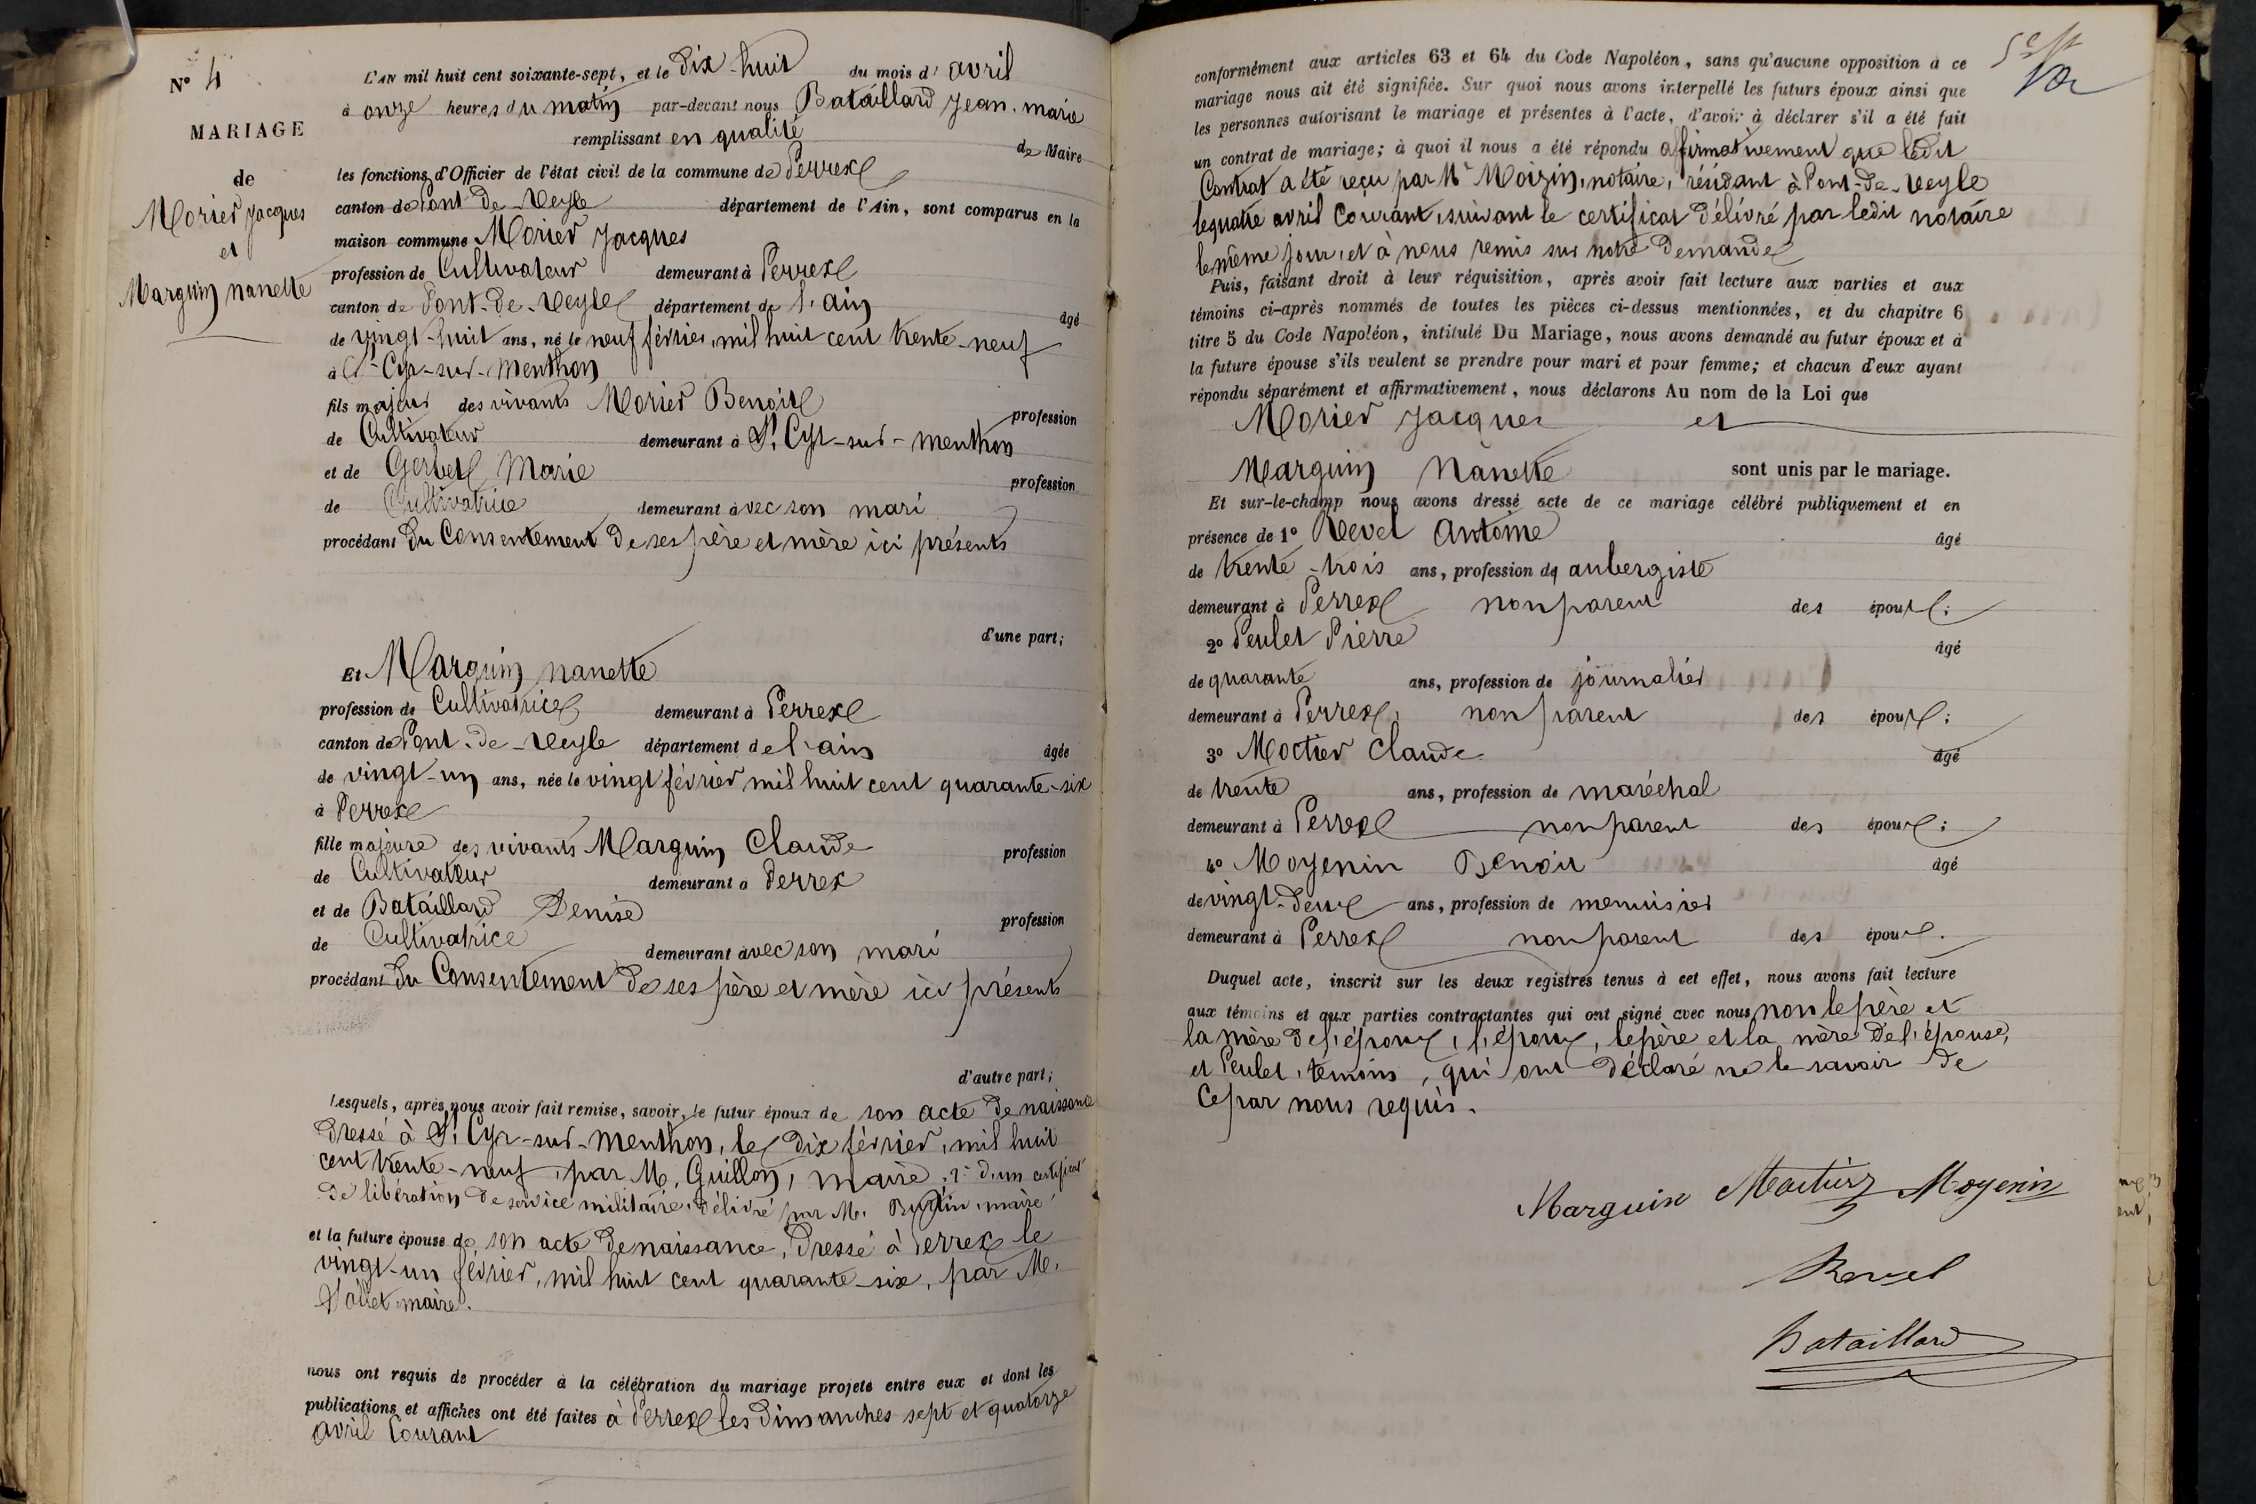 N° 4
MARIAGE
de
Morier Jacques
et
Marguin nanette
L'AN mil huit cent soixante-sept, et le dix-huit du mois d'avril
à onze heures du matin par-devant nous Bataillard Jean-marie
remplissant en qualité de Maire
les fonctions d'Officier de l'état civil de la commune de Perrex
canton de Pont-de-Veyle département de l'Ain, sont comparus en la
maison commune Morier Jacques
profession de Cultivateur demeurant à Perrex
canton de Pont-de-Veyle département de l'ain âgé
de vingt-huit ans, né le neuf février, mil huit cent trente-neuf
à St Cyr-sur-menthon
fils majeur des vivants Morier Benoit profession
de Cultivateur demeurant à St Cyr-sur-menthon
et de Gerbet Marie profession
de Cultivatrice demeurant avec son mari
procédant du Consentement de ses père et mère ici présents
d'une part;
Et Marguin nanette
profession de Cultivatrice demeurant à Perrex
canton de Pont-de-Veyle département de l'ain âgée
de vingt-un ans, née le vingt février mil huit cent quarante-six
à Perrex
fille majeure des vivants Marguin Claude profession
de Cultivateur demeurant à Perrex
et de Bataillard Denise profession
de Cultivatrice demeurant avec son mari
procédant du Consentement de ses père et mère ici présents
d'autre part;
Lesquels, après nous avoir fait remise, savoir, le futur époux de son acte de naissance
dressé à St Cyr-sur-menthon, le dix février, mil huit
cent trente-neuf, par M. Guillon, maire, 2° d'un certificat
de libération de service militaire, délivré par M. maire
et la future épouse de son acte de naissance, dressé à Perrex le
vingt-un février, mil huit cent quarante-six, par M.
maire.
nous ont requis de procéder à la célébration du mariage projeté entre eux et dont les
publications et affiches ont été faites à Perrex les dimanches sept et quatorze
avril Courant
conformément aux articles 63 et 64 du Code Napoléon, sans qu'aucune opposition à ce
mariage nous ait été signifiée. Sur quoi nous avons interpellé les futurs époux ainsi que
les personnes autorisant le mariage et présentes à l'acte, d'avoir à déclarer s'il a été fait
un contrat de mariage; à quoi il nous a été répondu affirmativement que ledit
Contrat a été reçu par Me Moizin, notaire, résidant à Pont-de-Veyle
le quatre avril Courant, suivant le certificat délivré par ledit notaire
le même jour, et à nous remis sur notre demande
Puis, faisant droit à leur réquisition, après avoir fait lecture aux parties et aux
témoins ci-après nommés de toutes les pièces ci-dessus mentionnées, et du chapitre 6
titre 5 du Code Napoléon, intitulé Du Mariage, nous avons demandé au futur époux et à
la future épouse s'ils veulent se prendre pour mari et pour femme; et chacun d'eux ayant
répondu séparément et affirmativement, nous déclarons Au nom de la Loi que
Morier Jacques et
Marguin Nanette sont unis par le mariage.
Et sur-le-champ nous avons dressé acte de ce mariage célébré publiquement et en
présence de 1° Revel Antoine âgé
de trente-trois ans, profession de aubergiste
demeurant à Perrex non parent des époux;
2° Peulet Pierre âgé
de quarante ans, profession de journalier
demeurant à Perrex, non parent des époux;
3° Moctier Claude âgé
de trente ans, profession de maréchal
demeurant à Perrex non parent des époux;
4° Moyenin Benoit âgé
de vingt-deux ans, profession de menuisier
demeurant à Perrex non parent des époux.
Duquel acte, inscrit sur les deux registres tenus à cet effet, nous avons fait lecture
aux témoins et aux parties contractantes qui ont signé avec nous non le père et
la mère de l'époux, l'époux, le père et la mère de l'épouse,
et Peulet, témoins, qui ont déclaré ne le savoir de
ce par nous requis.
Marguin Moctier Moyenin
Revel
Bataillard